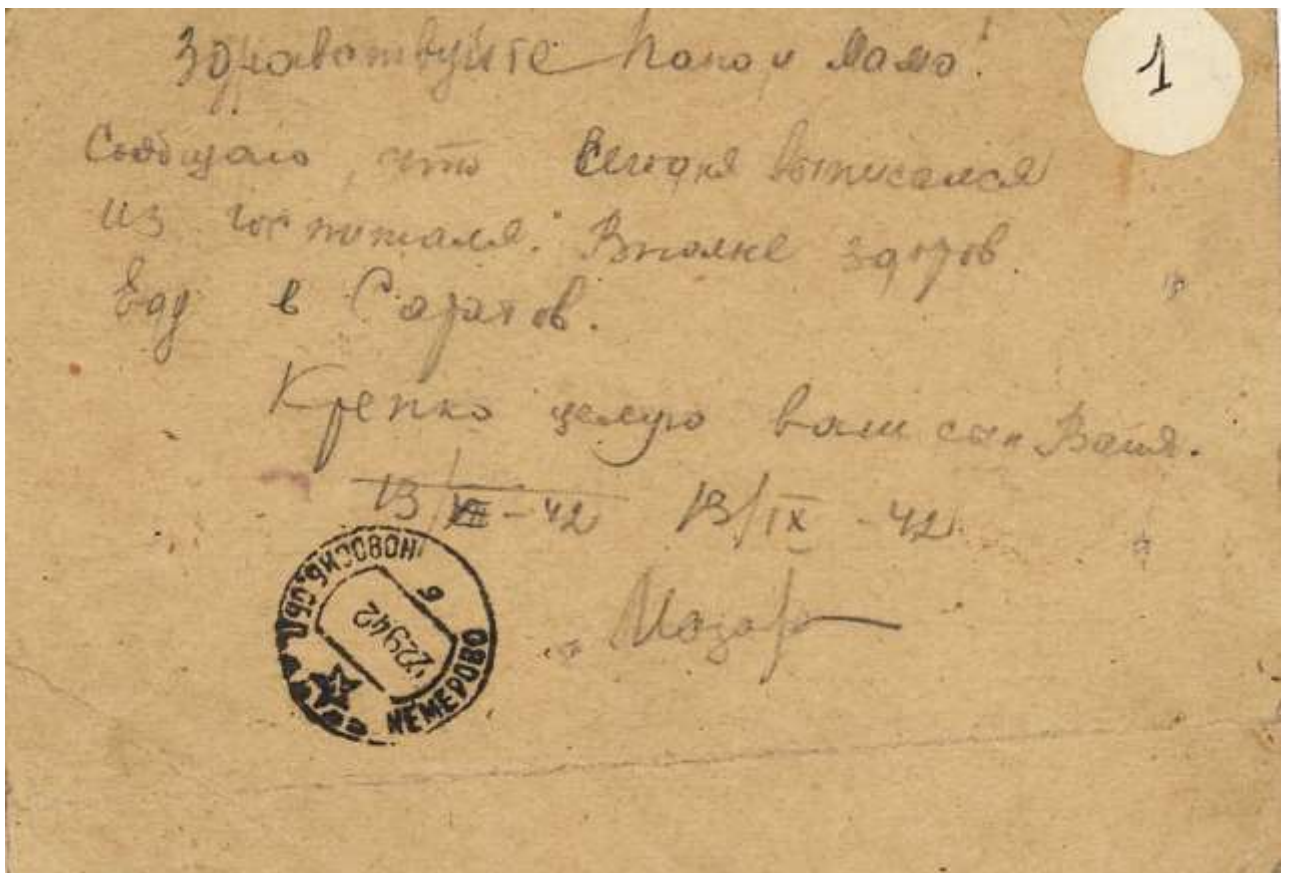 1
Здравствуйте Папа и Мама!
Сообщаю, что сегодня выписался
из госпиталя. Вполне здоров.
Еду в Саратов.
Крепко целую ваш сын Ваня.
13/VIII-42 13/IX-42
НОВОСИБ.ОБЛ.
6
22942
КЕМЕРОВО